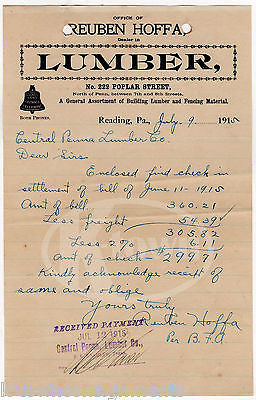 OFFICE OF
REUBEN HOFFA,
Dealer in
LUMBER,
No. 222 POPLAR STREET,
North of Penn, between 7th and 8th Streets.
A General Assortment of Building Lumber and Fencing Material.
BOTH PHONES.
Reading, Pa., July 9 1915
Central Penna Lumber Co.
Dear Sirs
Enclosed find check in
settlement of bill of June 11-1915
Amt of bill 360.21
Less freight 54.39
305.82
Less 2% 6.11
Amt of check 299.71
Kindly acknowledge receipt of
same and oblige
Yours truly
Reuben Hoffa
Per B.F.O.
RECEIVED PAYMENT
JUL 12 1915
Central Penna. Lumber Co.,